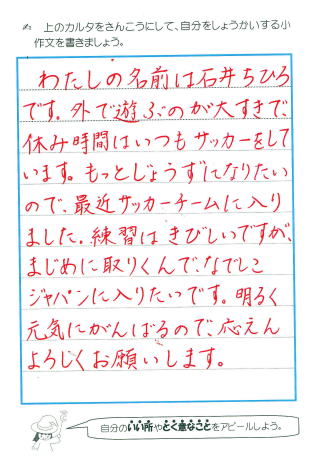 上のカルタをさんこうにして、自分をしょうかいする小
作文を書きましょう。
わたしの名前は石井ちひろ
です。外で遊ぶのが大すきで、
休み時間はいつもサッカーをして
います。もっとじょうずになりたい
ので、最近サッカーチームに入り
ました。練習はきびしいですが、
まじめに取りくんで、なでしこ
ジャパンに入りたいです。明るく
元気にがんばるので、応えん
よろしくお願いします。
自分のいい所やとく意なことをアピールしよう。